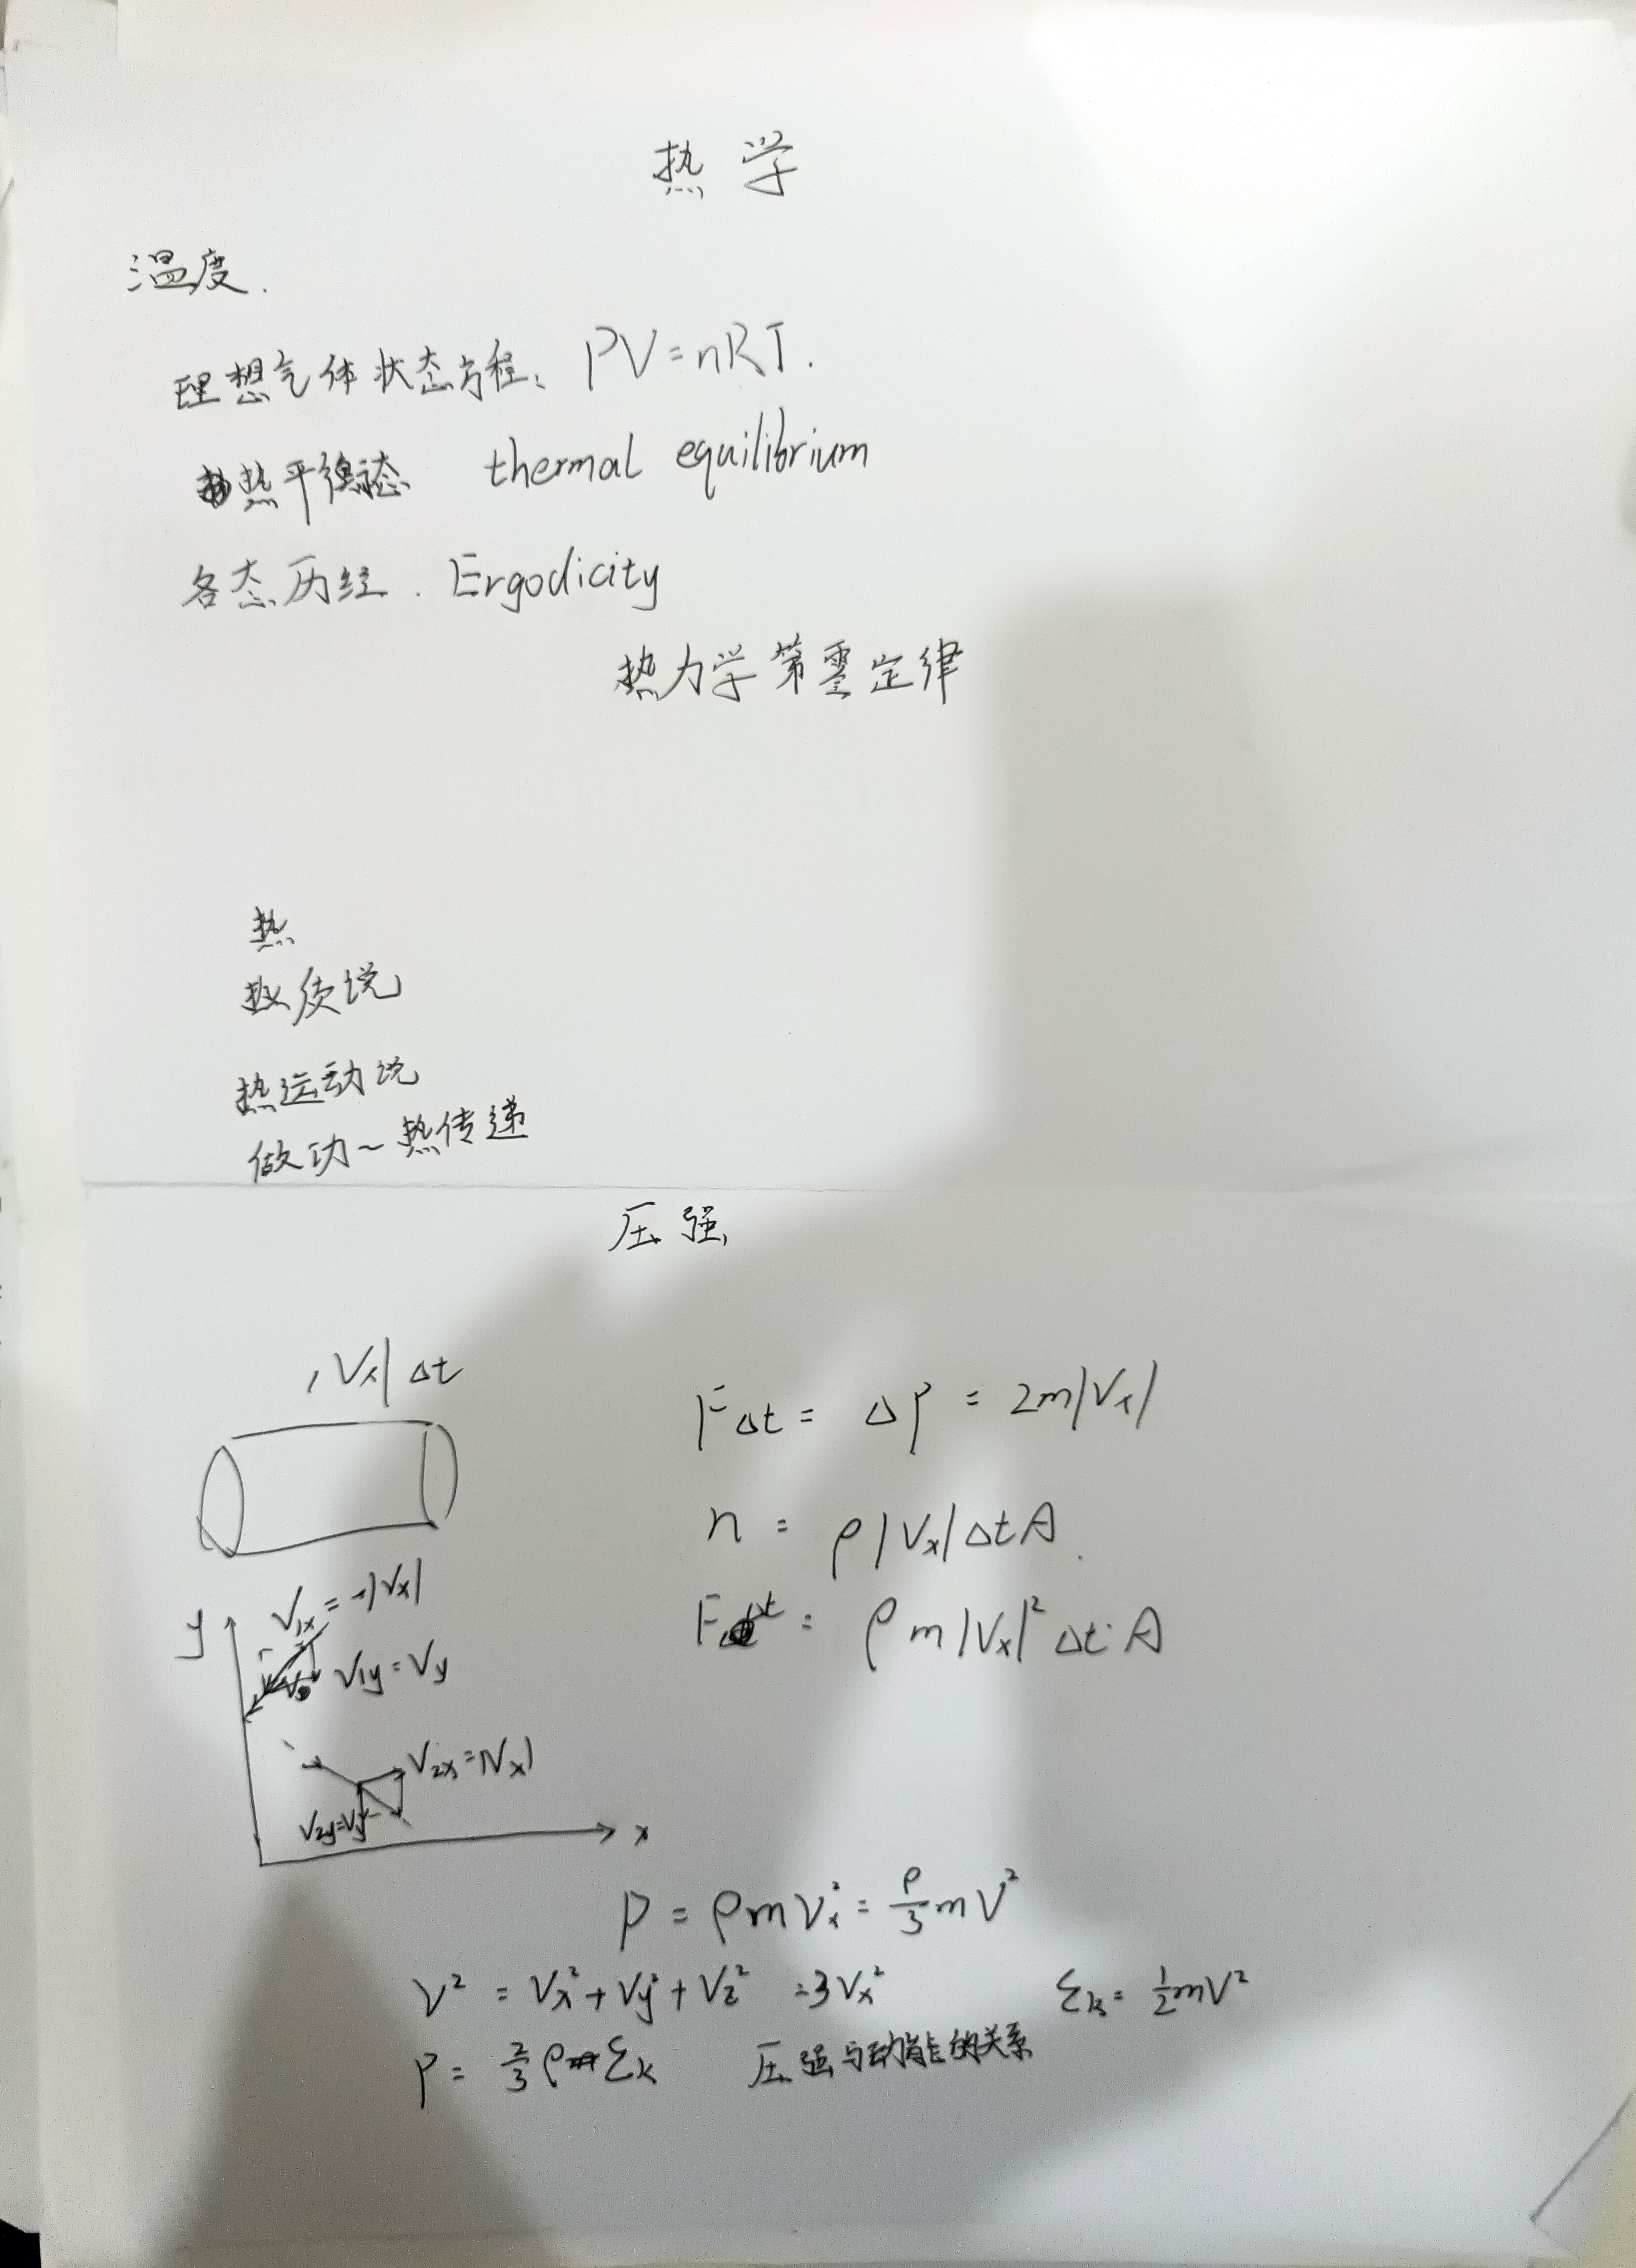 热学
温度.
理想气体状态方程: PV=nRT.
热平衡态 thermal equilibrium
各态历经. Ergodicity
热力学第零定律
热
热质说
热运动说
做功~热传递
压强
|Vx|Δt
FΔt = ΔP = 2m|Vx|
n = ρ|Vx|ΔtA.
FΔt = ρm|Vx|²Δt·A
y
V1x = -|Vx|
V1y = Vy
V2x = |Vx|
V2y=Vy
x
P = ρmVx² = ρ/3 mV²
V² = Vx²+Vy²+Vz² =3Vx² Σk= ½mV²
P = ⅔ρΣk 压强与动能的关系